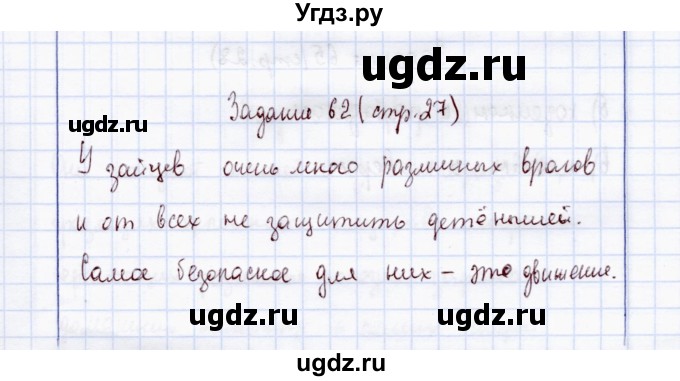 Угдз.ру
ugdz.ru
Задание 62 (стр.27)
ugdz.ru
У зайцев очень много различных врагов
и от всех не защитить детёнышей.
Самое безопасное для них – это движение.
ugdz.ru ugdz.ru
ugdz.ru